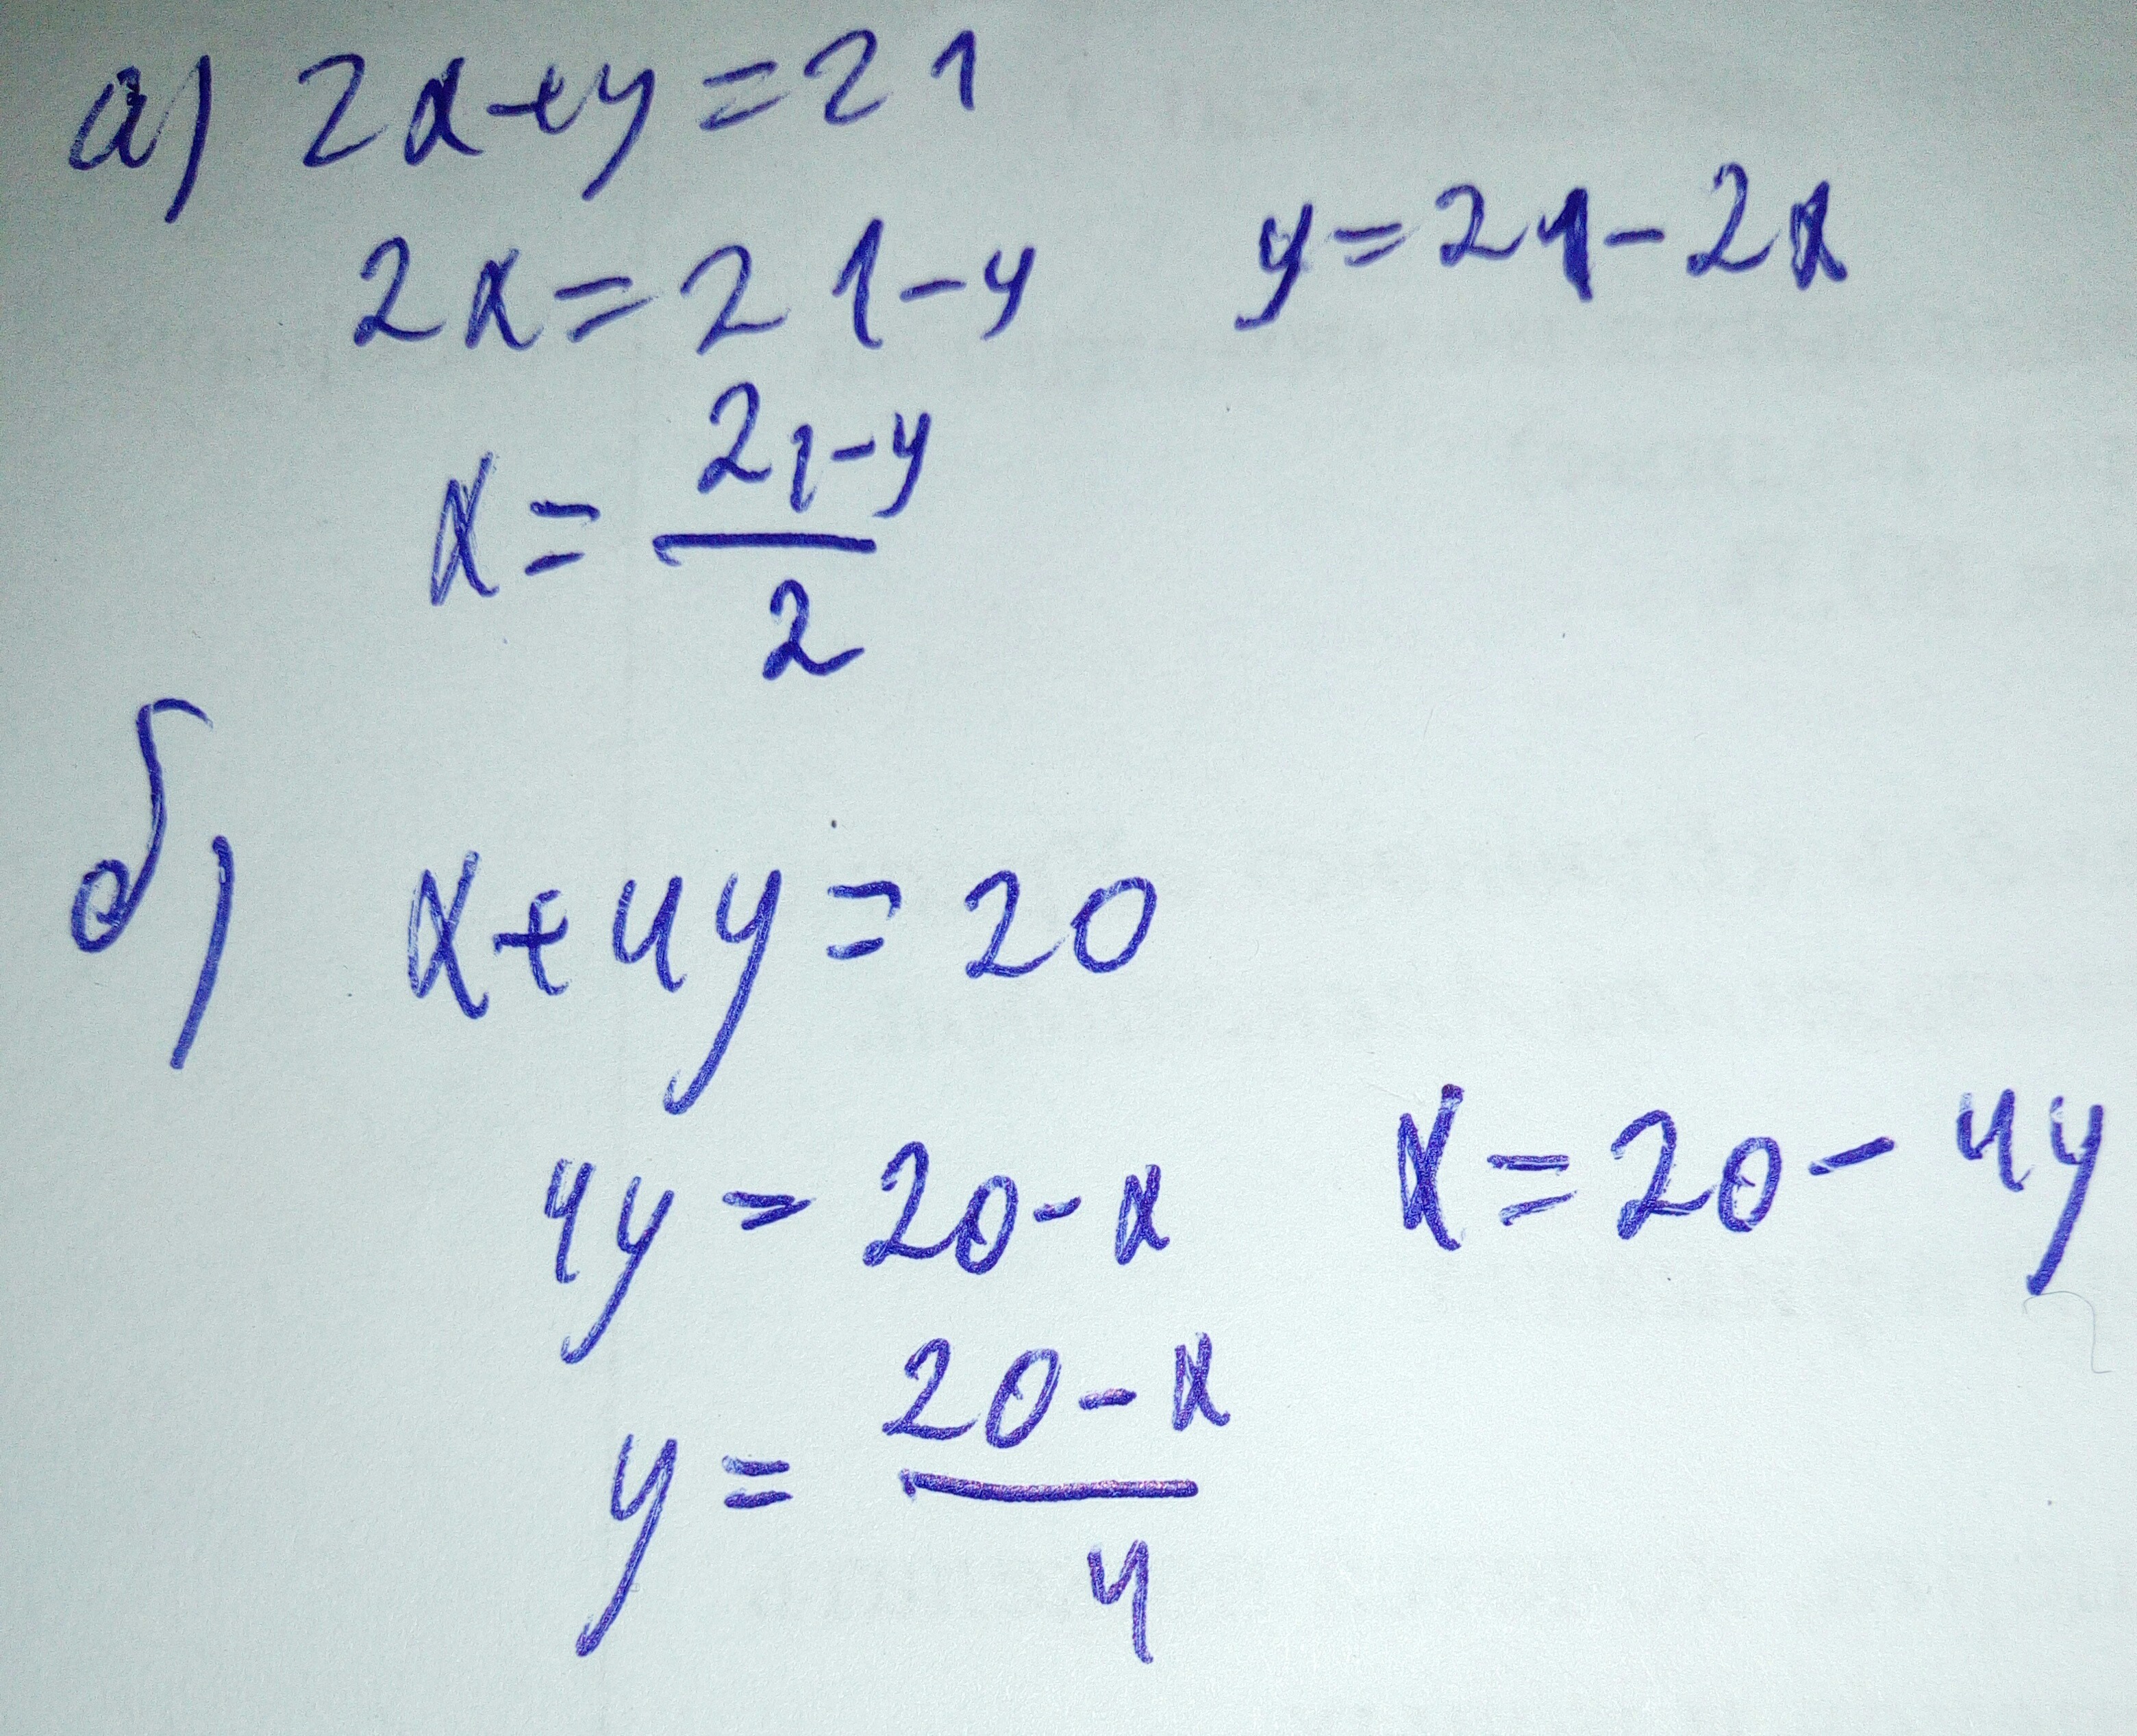 а) 2x+y=21
2x=21-y y=21-2x
x= 21-y
2
б) x+4y=20
4y=20-x x=20-4y
y= 20-x
4